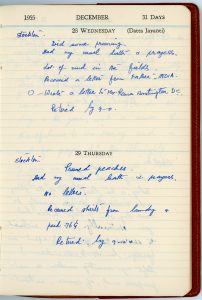 1955 DECEMBER 31 DAYS
Stockton.
28 WEDNESDAY (Dates Jananei)
Did some pruning.
Had my usual bath & prayers.
Lot of mud in the fields.
Received a letter from
Wrote a letter to Huntington, D.C.
Retired by 9
29 THURSDAY
Stockton.
Pruned peaches
Had my usual bath & prayers.
No letters.
Received shirts from laundry &
paid 76¢
Retired by